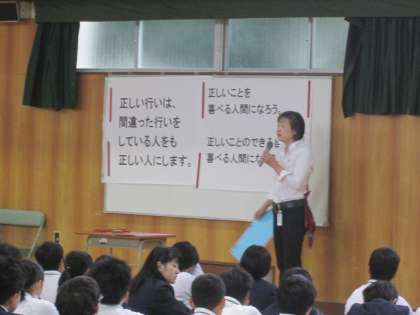 正しい行いは、
間違った行いを
している人をも
正しい人にします。
正しいことを
喜べる人間になろう。
正しいことのできる
喜べる人間にな